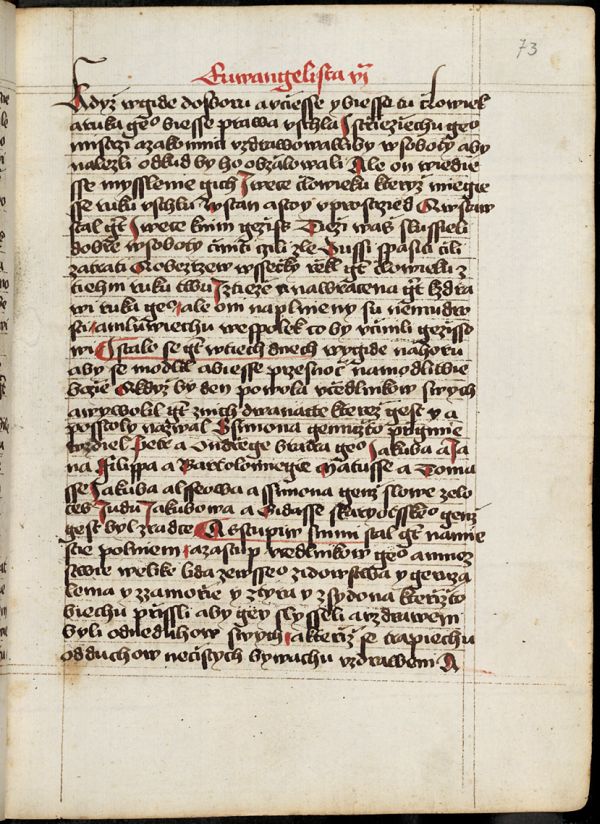 73
Euwangelista vj
Kdyz wgide dosboru avciesse ybiesse tu clowiek
aruka geo biesse prawa vschla Istrzieziechu geo
mistrzi azakonnici vzdrawowalliby wsoboty aby
nalezli odkud by ho obzalowali Ale on wiedie
sse myssleme gich Jwece clowieku kteryz miegie
sse ruku vschlu wstan astoy vprostrzied Awstaw
stal gt Jwece knim gezis Tiezi was slussieli
dobrze wsoboty ciniti cili zle Dussi spasiti cili
zatrati Aobezrzew wssecky rzekl gt clowieku z
tiehni ruku twu Jztieze a nawracena gt kzdra
wi ruka geo ale oni naplnieny su nemudro
sti amluwiechu wespolek co by vcinili gezisso
wi Istalo se gt wtiech dnech wygide nahoru
aby se modlil abiesse przesnoc namodlitbie
bozie Akdyz by den powola vcedlnikow swych
awywolil gt znich dwanadcte kterez gest y a
posstoly nazwal Ssimona gemuzto przigmie
wzdiel Petr a Ondrzege bratra geo Jakuba a Ja
na Filippa a Bartolomiegie Matusse a Toma
sse Jakuba alffeowa a ssimona genz slowe zelo
tes Judu Jakubowa a Judasse skariothskeo genz
gest byl zradce A sstupiw snimi stal gt namie
stie polniem azastup vcedlnikow geo a mnoz
stwie welike lida zewsseo zidowstwa y geruza
lema y zzamorzie y ztyra y zsydona kterizto
biechu prissli aby gey slysseli a vzdraweni
byli odneduhow swych akteriz se trapiechu
odduchow necistych bywachu vzdraweni A